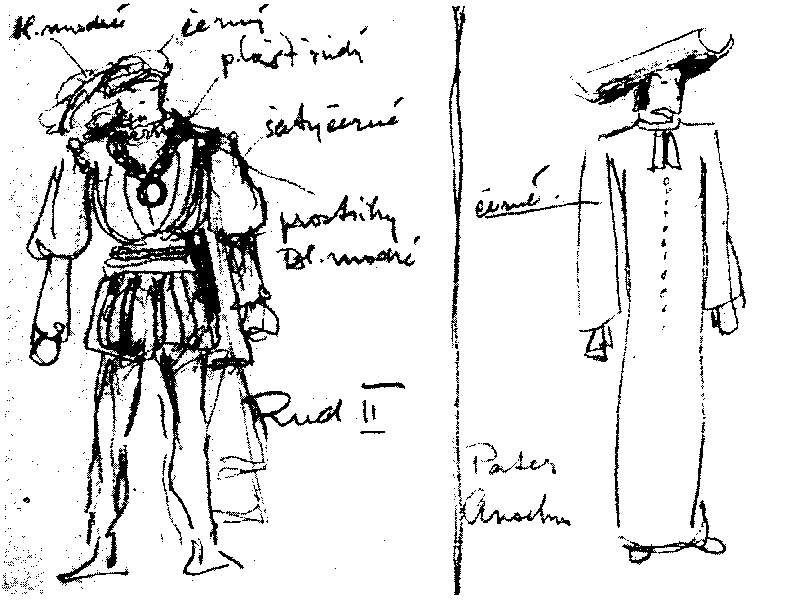 tl. modré
černý
plášť rudý
šaty černé
prostřihy
tl. modré
Rud II
černé
Pater
Anselm